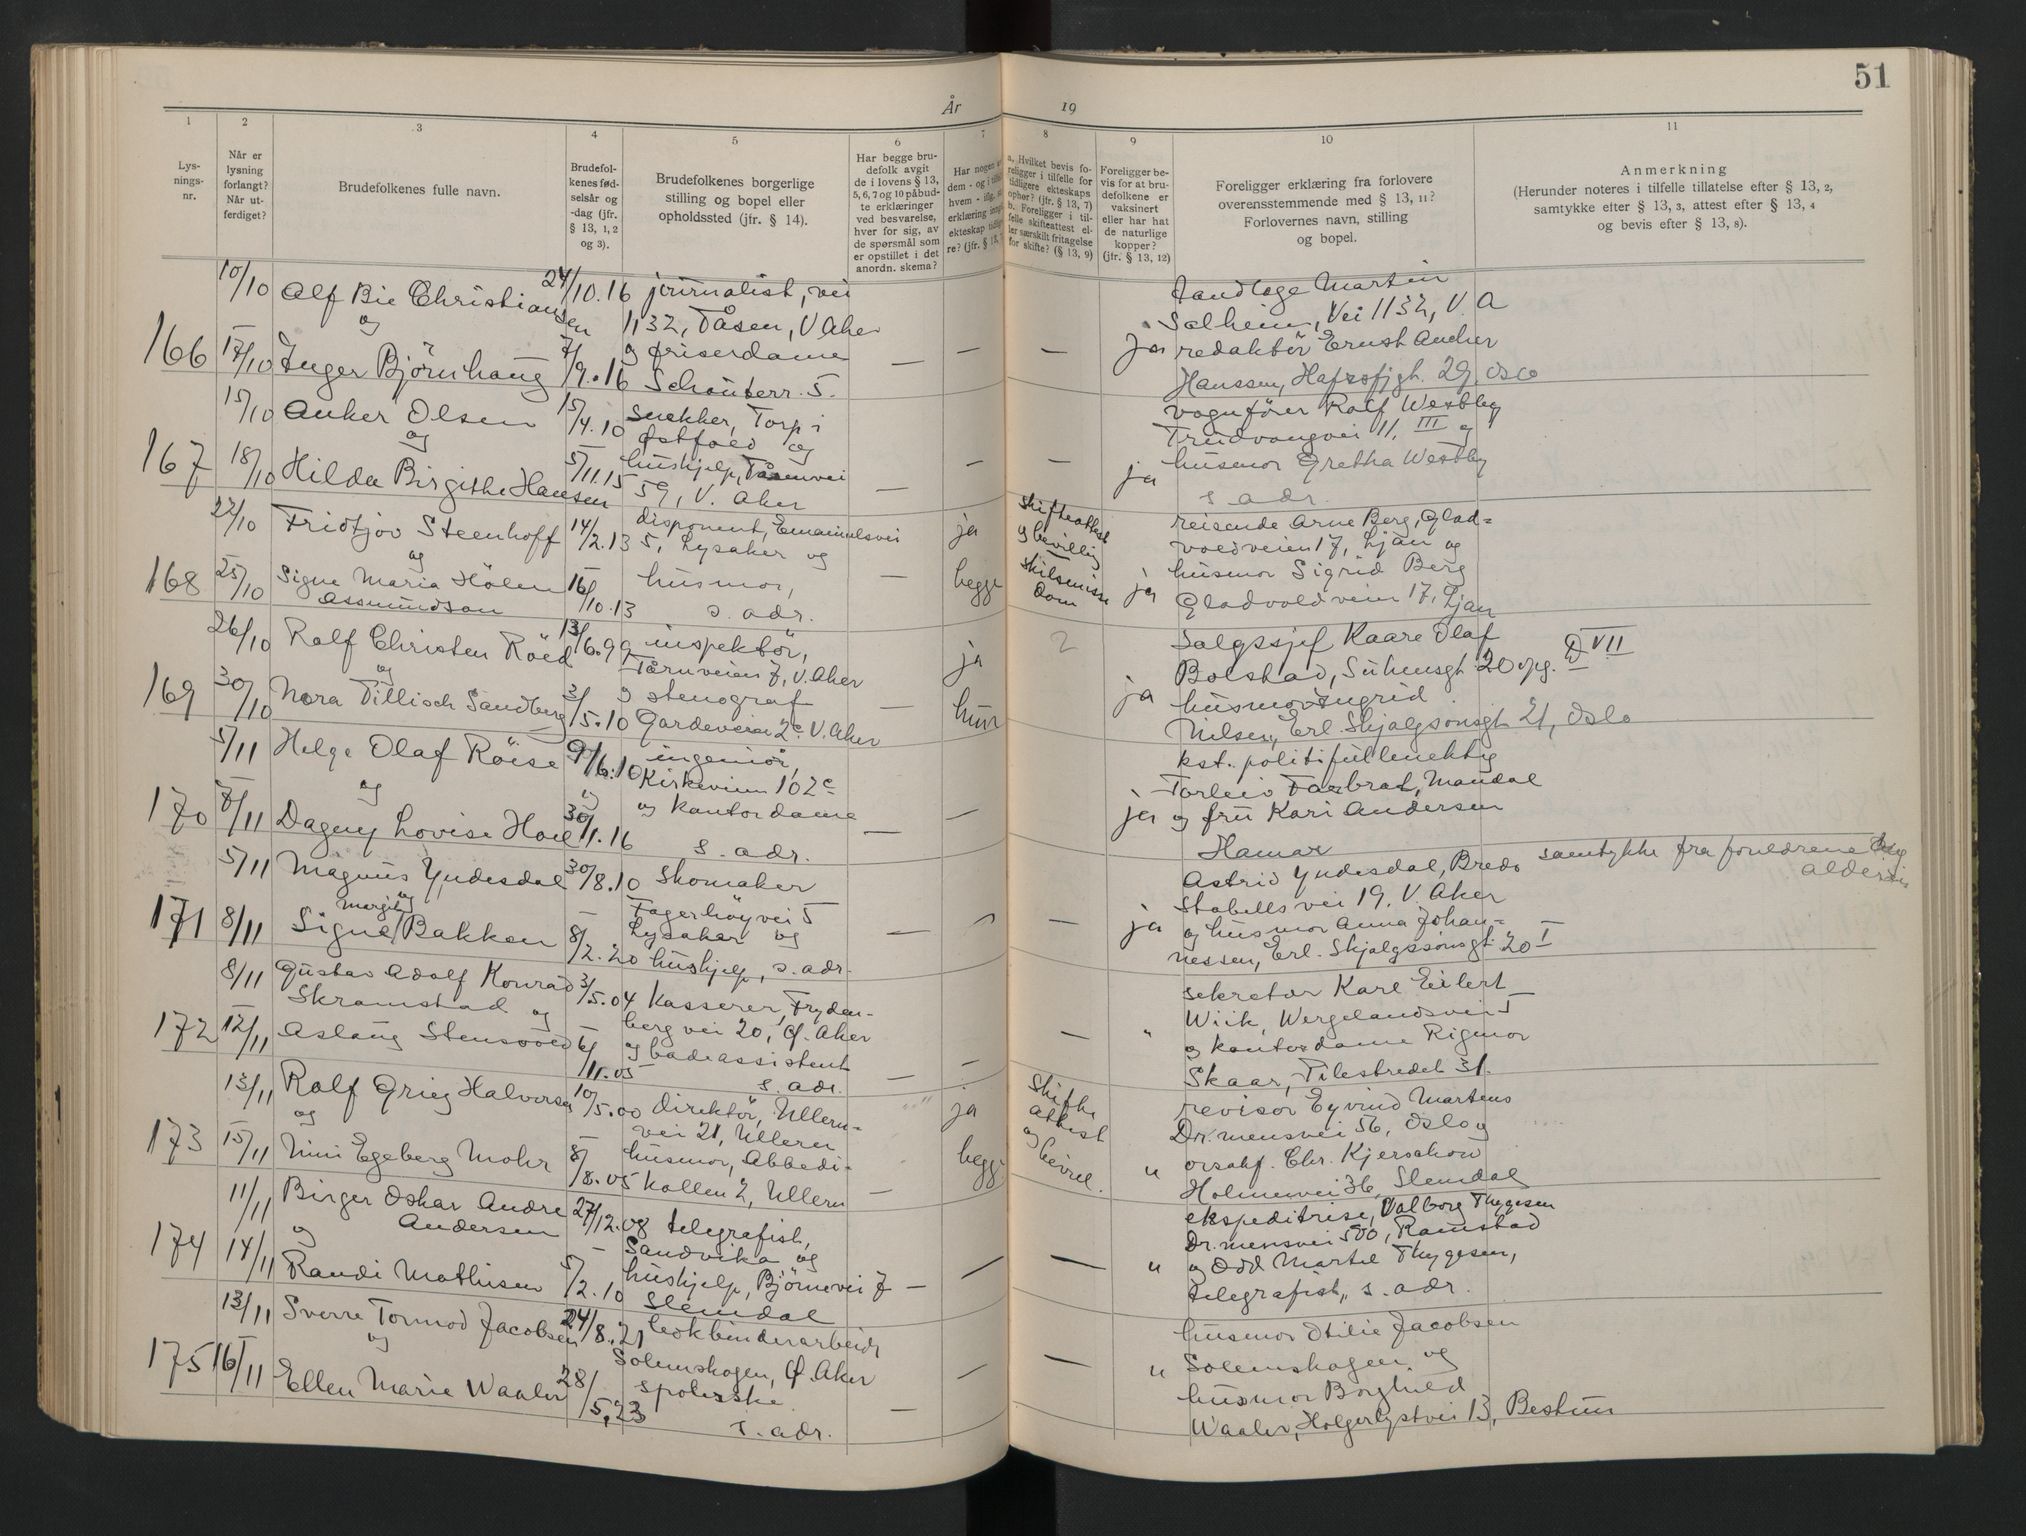 51
År 19
1 2 3 4 5 6 7 8 9 10 11
Lys-
nings-
nr.
Når er
lysning
forlangt?
Når ut-
ferdiget?
Brudefolkenes fulle navn.
Brudefol-
kenes fød-
selsår og
-dag (jfr.
§ 13, 1, 2
og 3).
Brudefolkenes borgerlige
stilling og bopel eller
opholdssted (jfr. § 14).
Har begge bru-
defolk avgit
de i lovens § 13,
5, 6, 7 og 10 påbud-
te erklæringer
ved besvarelse,
hver for sig, av
de spørsmål som
er opstillet i det
anordn. skema?
Har nogen av
dem - og i tilfelle
hvem - iflg.
erklæring inngått
ekteskap tidlige-
re? (jfr. § 13, 7
a. Hvilket bevis fo-
religger i tilfelle for
tidligere ekteskaps
ophør? (jfr. § 13, 7)
b. Foreligger i til-
felle skifteattest el-
ler særskilt fritagelse
for skifte? (§ 13, 9)
Foreligger be-
vis for at bru-
defolkene er
vaksinert
eller har hat
de naturlige
kopper?
(jfr. § 13, 12)
Foreligger erklæring fra forlovere
overensstemmende med § 13, 11?
Forlovernes navn, stilling
og bopel.
Anmerkning
(Herunder noteres i tilfelle tillatelse efter § 13, 2,
samtykke efter § 13, 3, attest efter § 13, 4
og bevis efter § 13, 8).
166
10/10
17/10
Alf Bie Christiansen
og
Inger Bjørnhaug
24/10.16
7/9.16
journalist, vei
1132, Tåsen, V Aker
og friserdame
Schouterr. 5.
—
—
—
ja
Tandlæge Martin
Solheim, Vei 1132, V. A
redaktör Ernst Ancher
Hanssen, Hafrsfjgt. 29. Oslo
167
15/10
18/10
Anker Olsen
og
Hilda Birgithe Hansen
15/4.10
5/11.15
snekker, Torp i
Østfold og
hushjelp, Tåsenvei
59, V. Aker
—
—
—
ja
vognfører Rolf Westbby
Trudvangvei 11, III og
husmor Gretha Westby
s adr.
168
22/10
25/10
Fridtjov Steenhoff
og
Signe Maria Hölen
Assmundson
14/2.13
16/10.13
disponent, Emanuelsvei
5, Lysaker og
husmor,
s. adr.
—
ja
begge
skifteattest
og bevilling
skilsmisse
dom
ja
reisende Arne Berg, Glad-
voldveien 17, Ljan og
husmor Sigrid Berg
Gladvoldveien 17, Ljan
169
26/10
30/10
Rolf Christen Röed
og
Nora Tillisch Sandberg
13/6.99
3/5.10
inspektör,
Tårnveien 7, V. Aker
og stenograf
Gardeveien 2c V. Aker
—
ja
hun
2
ja
Salgssjef Kaare Olaf
Bolstad, Suhmsgt. 20 opg. D VII
husmor Ingrid
Nilsen, Erl. Skjalgsonsgt 21, Oslo
170
5/11
8/11
Helge Olaf Röise
og
Dagny Lovise Hoel
9/6.10
30/11.16
ingeniör,
Kirkeveien 102c
og kontordame
s. adr.
—
—
ja
kst. politifullmektig
Torleiv Farbrot, Mandal
og fru Kari Andersen
Hamar
171
5/11
8/11
Magnus Yndesdal
og
Margit
Signe Bakken
30/8.10
8/2.20
Skomaker
Fagerhöyvei 5
Lysaker og
hushjelp, s. adr.
—
—
—
ja
Astrid Yndesdal, Breds
Stabells vei 19, V. Aker
og husmor Anna Johan-
nessen, Erl. Skjalgssönsgt. 20 I
samtykke fra foreldrene
172
8/11
12/11
Gustav Adolf Konrad
Skramstad og
Aslaug Stensvold
3/5.04
6/11.05
kasserer, Fryden-
berg vei 20, Ø. Aker
og badeassistent
s. adr.
—
—
—
"
sekretær Karl Eilert
Wiik, Wergelandsvei 5
og kontordame Rigmor
Skaar, Pilestredet 31.
173
13/11
15/11
Rolf Grieg Halvorsen
og
Nini Egeberg Mohr
10/5.00
8/8.05
direktör, Ullern-
vei 21, Ullern
husmor, Abbedi-
kollen 2, Ullern
—
ja
begge
Skifte
attest
og bevill.
"
revisor Eyvind Martens
Dr.mensvei 56, Oslo og
orsakf. Chr. Kjerschow
Holmenvei 36, Slemdal
174
11/11
14/11
Birger Oskar Andre
Andersen
og
Randi Mathisen
27/12.08
5/2.10
telegrafist,
Sandvika og
hushjelp, Björnevei 7
Slemdal
—
—
—
"
ekspeditrise, Valborg Thygesen
Dr.mensvei 500, Ramstad
og Odd Martel Thygesen,
telegrafist, s. adr.
175
13/11
16/11
Sverre Tormod Jacobsen
og
Ellen Marie Waaler
24/8.21
28/5.23
bokbinderarbeider
Solemskogen, Ø. Aker
spolerske
s. adr.
—
—
—
"
husmor Otilie Jacobsen
Solemskogen, og
husmor Borghild
Waaler, Holgerlystvei 13, Bestum